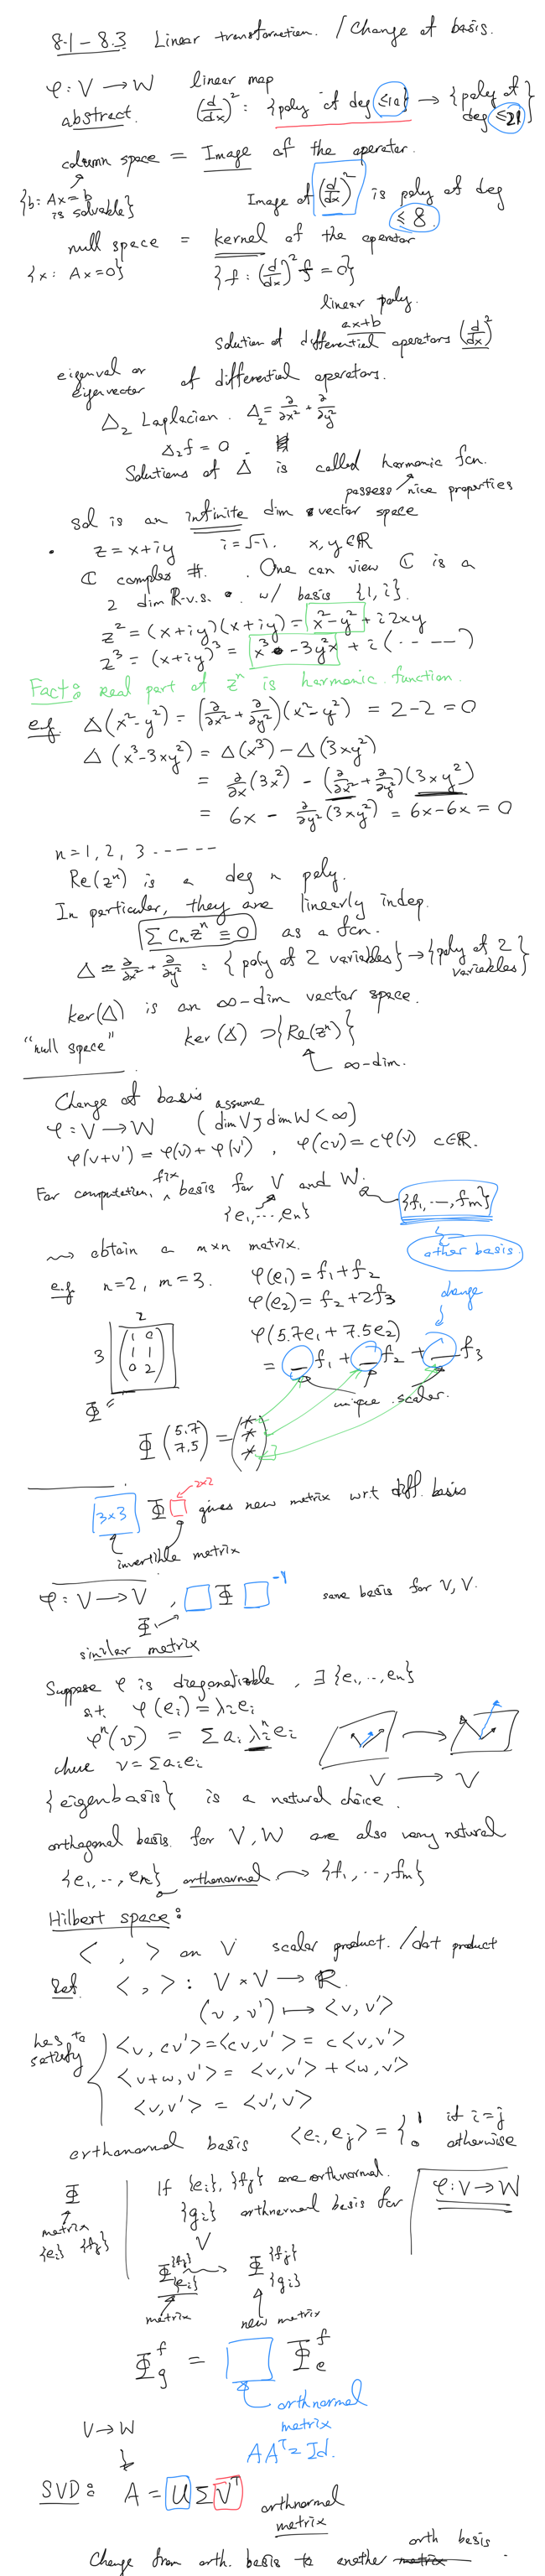 8.1 – 8.3 Linear transformation. / Change of basis.
φ : V → W linear map
abstract. (d/dx)² : {poly of deg ≤10} → {poly of deg ≤21}
column space = Image of the operator.
{b : Ax=b is solvable}
Image of (d/dx)² is poly of deg ≤ 8.
null space = kernel of the operator
{x : Ax=0} {f : (d/dx)² f = 0}
linear poly.
ax+b
solution of differential operators (d/dx)²
eigenval or eigenvector of differential operators.
Δ₂ Laplacian. Δ₂ = ∂/∂x² + ∂/∂y²
Δ₂f = 0
Solutions of Δ is called harmonic fcn.
possess nice properties
sol is an infinite dim vector space
• z = x+iy i = √-1. x, y ∈ ℝ
ℂ complex #. One can view ℂ is a
2 dim ℝ-v.s. w/ basis {1, i}.
z² = (x+iy)(x+iy) = x²-y² + i2xy
z³ = (x+iy)³ = x³ - 3y²x + i(- - - -)
Fact: Real part of zⁿ is harmonic function.
e.g. Δ(x²-y²) = (∂/∂x² + ∂/∂y²)(x²-y²) = 2-2 = 0
Δ(x³-3xy²) = Δ(x³) - Δ(3xy²)
= ∂/∂x(3x²) - (∂/∂x² + ∂/∂y²)(3xy²)
= 6x - ∂/∂y²(3xy²) = 6x-6x = 0
n = 1, 2, 3 - - - - -
Re(zⁿ) is a deg n poly.
In particular, they are linearly indep.
Σ cₙzⁿ ≡ 0 as a fcn.
Δ = ∂/∂x² + ∂/∂y² : {poly of 2 variables} → {poly of 2 variables}
ker(Δ) is an ∞-dim vector space.
"null space" ker(Δ) ⊃ {Re(zⁿ)}
∞-dim.
Change of basis
φ : V → W assume (dim V, dim W < ∞)
φ(v+v') = φ(v) + φ(v'), φ(cv) = cφ(v) c∈ℝ.
For computation, fix basis for V and W.
{e₁, ..., eₙ} {f₁, ..., fₘ}
other basis.
⇝ obtain a m×n matrix.
e.g. n=2, m=3. φ(e₁) = f₁+f₂
φ(e₂) = f₂+2f₃
change
2
3 (1 0
1 1
0 2)
Φ =
φ(5.7e₁ + 7.5e₂)
= _ f₁ + _ f₂ + _ f₃
unique scalar.
Φ (5.7
7.5) = (*
*
*)
2×2
3×3 Φ □ gives new matrix wrt diff. basis
invertible matrix
φ : V → V, □ Φ □⁻¹ same basis for V, V.
Φ
similar matrix
Suppose φ is diagonalizable, ∃ {e₁, .., eₙ}
s.t. φ(eᵢ) = λᵢeᵢ
φⁿ(v) = Σ aᵢ λᵢⁿ eᵢ
where v = Σaᵢeᵢ
V → V
{eigenbasis} is a natural choice.
orthogonal basis for V, W are also very natural
{e₁, .., eₙ} orthonormal {f₁, .., fₘ}
Hilbert space:
< , > on V scalar product. / dot product
Def. < , > : V × V → ℝ.
(v, v') ↦ <v, v'>
has to satisfy
<v, cv'> = <cv, v'> = c<v, v'>
<v+w, v'> = <v, v'> + <w, v'>
<v, v'> = <v', v>
orthonormal basis <eᵢ, eⱼ> = { 1 if i=j
0 otherwise
Φ
matrix
{eᵢ} {fⱼ}
If {eᵢ}, {fⱼ} are orthnormal.
{gᵢ} orthnormal basis for V
φ : V → W
Φ{fⱼ}{eᵢ} → Φ{fⱼ}{gᵢ}
matrix new matrix
Φ_g^f = □ Φ_e^f
orthnormal matrix
AAᵀ = Id.
V → W
SVD: A = U Σ Vᵀ orthnormal matrix
Change from orth. basis to another orth basis.